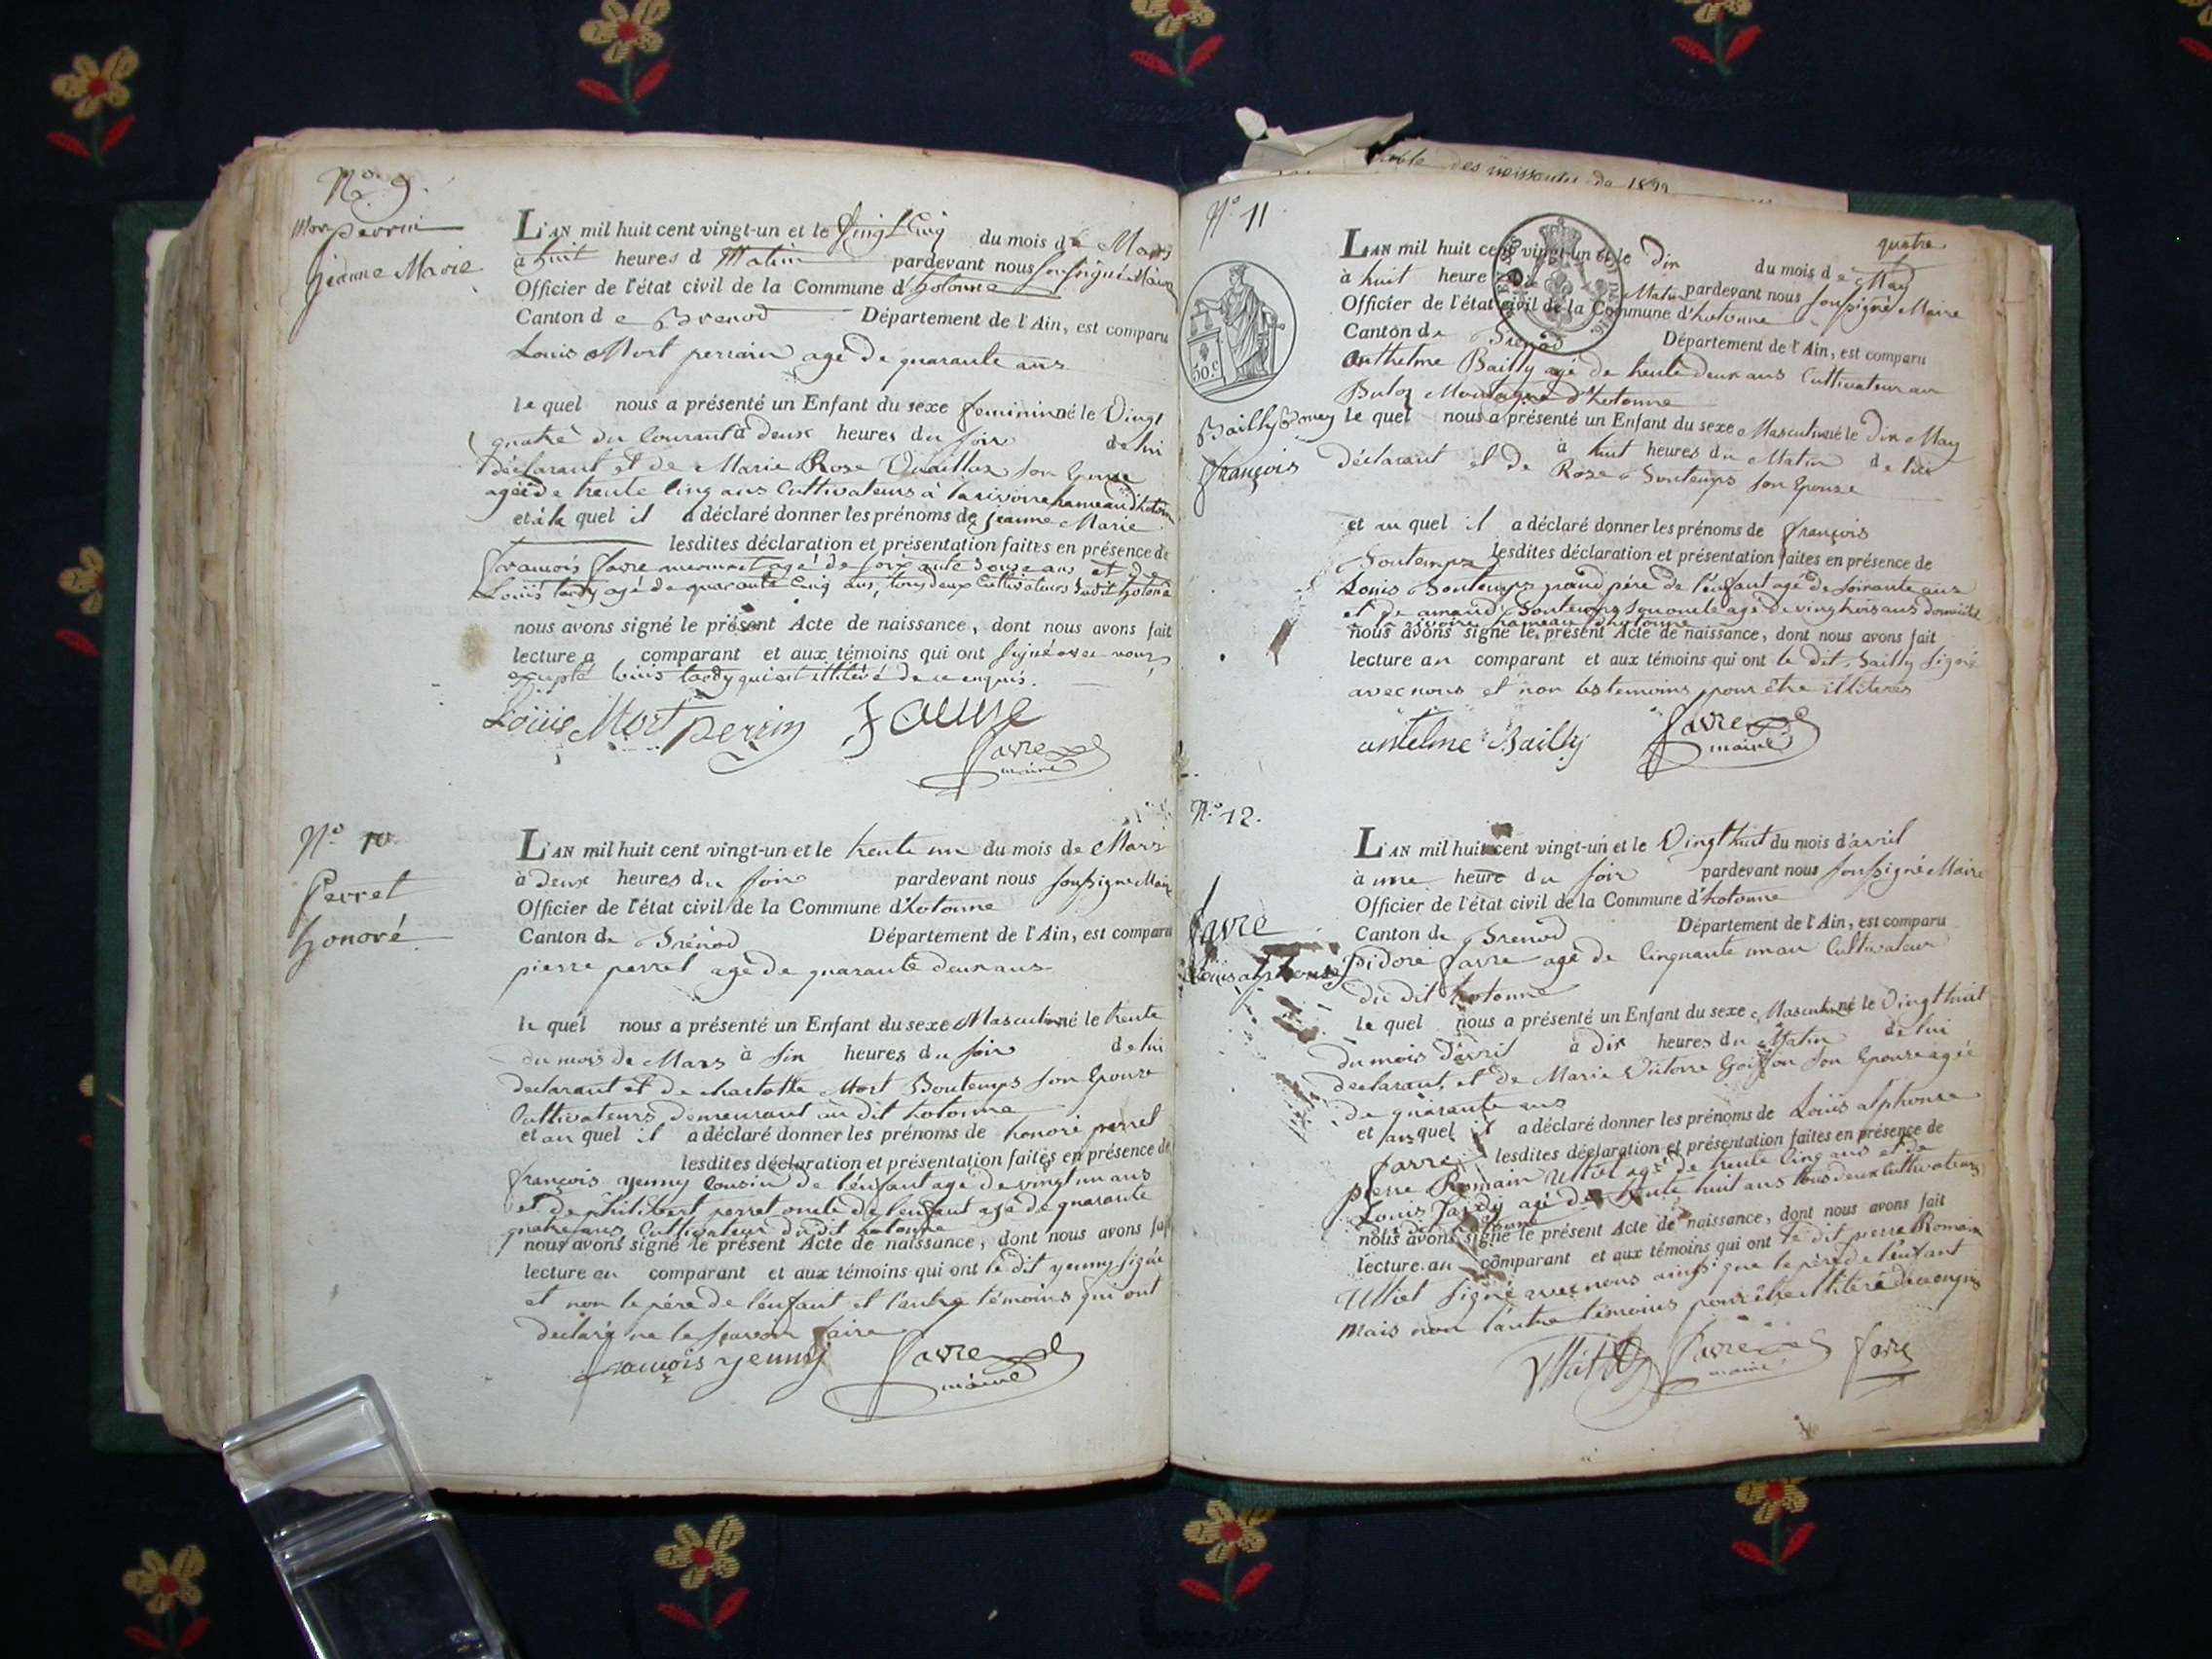 N.º 9.
Mort perrin
jeanne Marie
L'AN mil huit cent vingt-un et le Vingt Cinq du mois de Mars
à huit heures d Matin pardevant nous soussigné Maire
Officier de l'état civil de la Commune d'hotonne
Canton de Brenod Département de l'Ain, est comparu
Louis Mort perrin agé de quarante ans
le quel nous a présenté un Enfant du sexe feminin né le Vingt
quatre du Courant à deux heures du soir de lui
déclarant et de Marie Rose son Epouse
agée de trente Cinq ans Cultivateurs à larivoire hameau d'hotonne
et à la quel il a déclaré donner les prénoms de jeanne Marie
lesdites déclaration et présentation faites en présence de
françois favre agé de soixante douze ans et de
Louis tardy agé de quarante Cinq ans, tous deux Cultivateurs dudit hotonne
nous avons signé le présent Acte de naissance, dont nous avons fait
lecture a comparant et aux témoins qui ont signé avec nous
excepté louis tardy qui est illitéré de ce enquis.
Louis Mort perrin
favre
maire
N.º 10.
Perret
honoré
L'AN mil huit cent vingt-un et le trente un du mois de Mars
à deux heures du soir pardevant nous soussigné Maire
Officier de l'état civil de la Commune d'hotonne
Canton de Brénod Département de l'Ain, est comparu
pierre perret agé de quarante deux ans
le quel nous a présenté un Enfant du sexe Masculin né le trente
du mois de Mars à six heures du soir de lui
declarant et de charlotte Mort Bontemps son Epouse
Cultivateurs demeurant au dit hotonne
et au quel il a déclaré donner les prénoms de honoré perret
lesdites déclaration et présentation faites en présence de
françois yenny Cousin de l'enfant agé de vingt un ans
et de philibert perret oncle de l'enfant agé de quarante
quatre ans Cultivateur dudit hotonne
nous avons signé le présent Acte de naissance, dont nous avons fait
lecture au comparant et aux témoins qui ont le dit yenny signé
et non le pére de l'enfant et l'autre témoins qui ont
declaré ne le scavoir faire
françois yenny
favre
maire
table des naissantes de
N.º 11
L'AN mil huit cent vingt-un et le dix quatre du mois de May
à huit heure du Matin pardevant nous soussigné Maire
Officier de l'état civil de la Commune d'hotonne
Canton de Brenod Département de l'Ain, est comparu
Anthelme Bailly agé de trente deux ans Cultivateur au
Montagne d'hotonne
30 c
Bailly
françois
le quel nous a présenté un Enfant du sexe Masculin né le dix May
à huit heures du Matin de lui
déclarant et de Rose Bontemps son Epouse
et au quel il a déclaré donner les prénoms de françois
Bontemps lesdites déclaration et présentation faites en présence de
Louis Bontemps grand pére de l'enfant agé de soixante ans
et de amand Bontemps son oncle agé de vingt trois ans domicilié
a la rivoire hameau d'hotonne
nous avons signé le présent Acte de naissance, dont nous avons fait
lecture au comparant et aux témoins qui ont le dit Bailly signé
avec nous et non les temoins pour être illiterés
antelme Bailly
favre
maire
N.º 12.
favre
Louis alphonse
L'AN mil huit cent vingt-un et le Vingt huit du mois d'avril
à une heure du soir pardevant nous soussigné Maire
Officier de l'état civil de la Commune d'hotonne
Canton de Brenod Département de l'Ain, est comparu
isidore favre agé de Cinquante un an Cultivateur
du dit hotonne
le quel nous a présenté un Enfant du sexe Masculin né le Vingt huit
du mois d'avril à dix heures du Matin de lui
declarant, et de Marie Victoire son Epouse agée
de quarante ans
et au quel il a déclaré donner les prénoms de Louis alphonse
favre lesdites déclaration et présentation faites en présence de
pierre Romain Ulliet agé de trente Cinq ans et de
Louis Tardy agé de trente huit ans tous deux Cultivateurs
du dit hotonne
nous avons signé le présent Acte de naissance, dont nous avons fait
lecture au comparant et aux témoins qui ont le dit pierre Romain
Ulliet signé avec nous ainsi que le pére de l'enfant
Mais non l'autre témoins pour être illitéré de ce enquis
favre
maire
favre